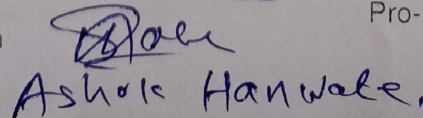 Pro-
Ashok Hanwate.